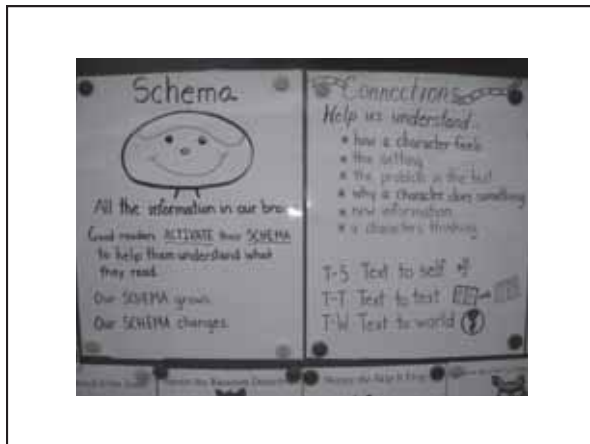 Schema
All the information in our
Good readers ACTIVATE their SCHEMA
to help them understand what
they read.
Our SCHEMA grows.
Our SCHEMA changes.
Connections
Help us understand...
how a character feels
the setting
the problem in the text
why a character does something
new information
a characters thinking
T-S Text to self
T-T Text to text
T-W Text to world